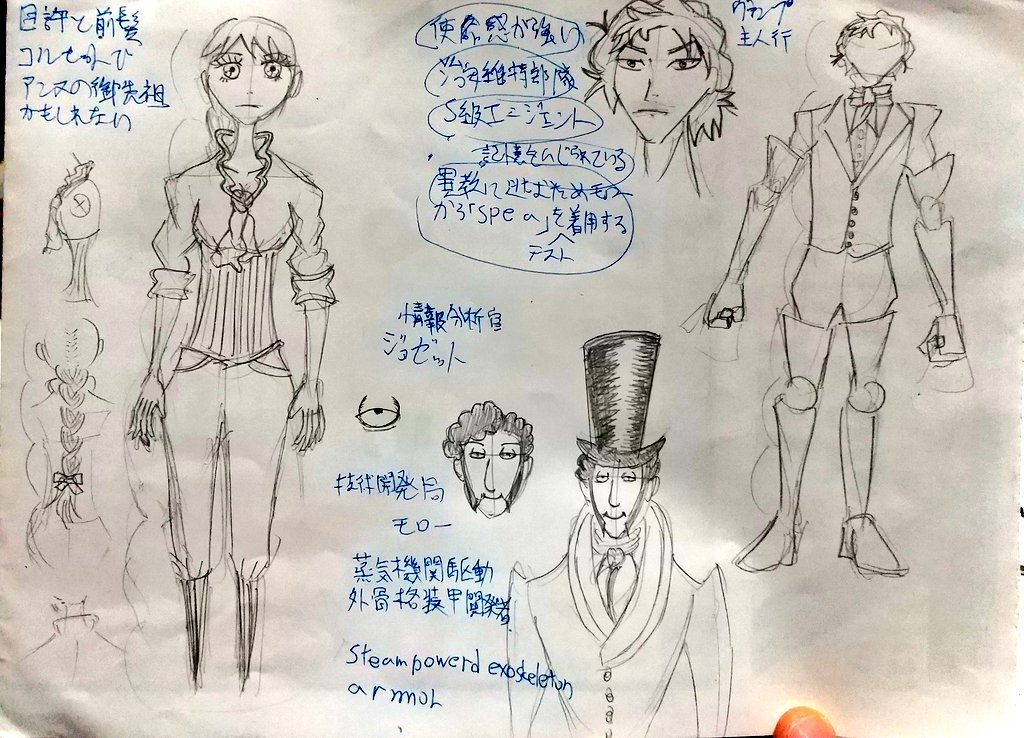 目許と前髪
コルセット
アンヌの御先祖
かもしれない
使命感が強い
治安維持部隊
S級エージェント
記憶をいじられている
「spea」を着用する
テスト
主人行
情報分析官
ジョゼット
技術開発局
モロー
蒸気機関駆動
外骨格装甲開発者
Steampowerd exoskeleton
armor